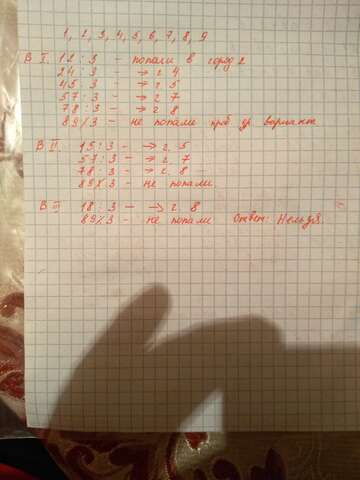 1, 2, 3, 4, 5, 6, 7, 8, 9
В I. 12 : 3 - попали в город 2
24 : 3 - → г 4
45 : 3 - → г 5
57 : 3 - → г. 7
78 : 3 - → г 8
89 ⁒ 3 - не попали проб др вариант
В II. 15 : 3 - → г. 5
57 : 3 - → г. 7
78 : 3 - → г. 8
89 ⁒ 3 - не попали.
В III 18 : 3 - → г. 8
89 ⁒ 3 - не попали Ответ: Нельзя.